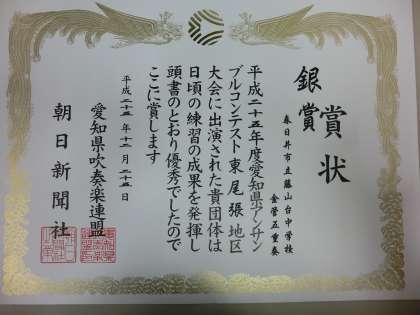 賞状
銀賞
春日井市立藤山台中学校
金管五重奏
平成二十五年度愛知県アンサン
ブルコンテスト東尾張地区
大会に出演された貴団体は
日頃の練習の成果を発揮し
頭書のとおり優秀でしたので
ここに賞します
平成二十五年十二月二十五日
愛知県吹奏楽連盟
朝日新聞社